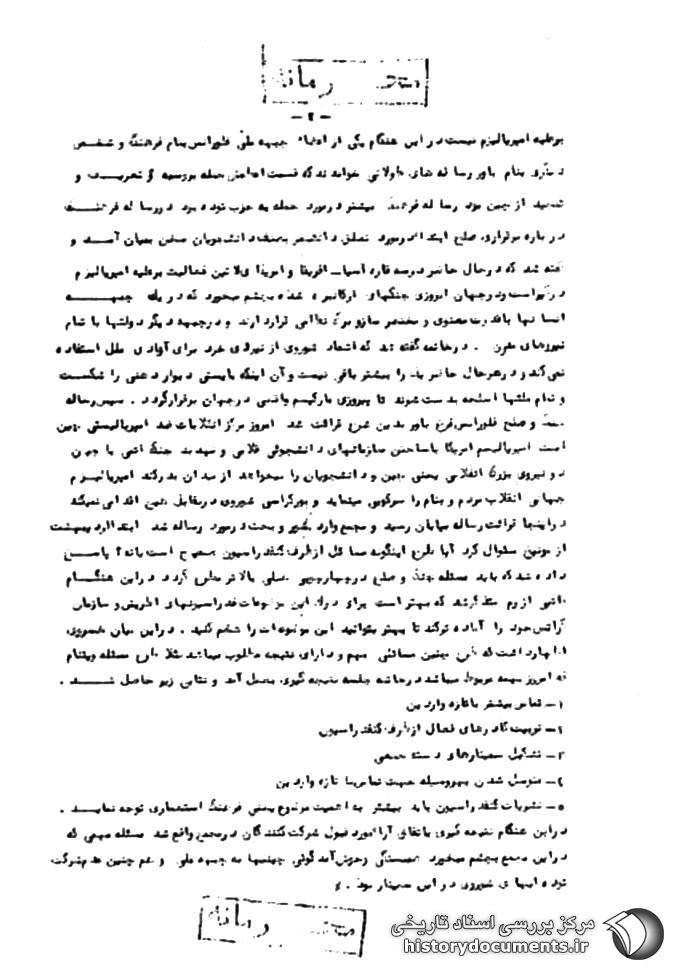 محرمانه
-۲-
برعلیه امپریالیزم نیست در این هنگام یکی از اعضاء جبهه ملی فلورانس بنام فرهنگ و شخص
دیگری بنام یاور رساله های طولانی خواندند که قسمت اعظمش حمله بروسیه و تعریف و
تمجید از چین بود رساله فرهنگ بیشتر در مورد حمله به حزب توده بود در رساله فرهنگ
درباره برقراری صلح ابتدا در مورد دانشجویان سخن بمیان آمد و
گفته شد که در حال حاضر در سه قاره آسیا - افریقا و امریکا لاتین فعالیت برعلیه امپریالیزم
درگیر است و در جهان امروزی جنگهای ارگانیزه شده بچشم میخورد که در یک جبهه
انسانها با قدرت معنوی و مختصر ساز و برگ نظامی قرار دارند و در جبهه دیگر دولتها با تمام
نیروهای مدرن . در خاتمه گفته شد که اتحاد شوروی از نیروی خود برای آزادی ملل استفاده
نمی کند و در هر حال حاضر یک راه بیشتر باقی نیست و آن اینکه بایستی دیوار را شکست
و تمام ملتها اسلحه بدست شوند تا پیروزی مارکسیسم واقعی در جهان برقرار گردد . سپس رساله
جنگ و صلح فلورانس یاور بدین شرح قرائت شد امروز مرکز انقلابات ضد امپریالیستی چین
است امپریالیسم امریکا با ساختن سازمانهای دانشجوئی قلابی و تهدید جنگ اتمی با چین
دو نیروی بزرگ انقلابی یعنی چین و دانشجویان را میخواهد از میدان بدر کند امپریالیزم
جهانی انقلاب مردم ویتنام را سرکوبی مینماید و بورکراسی شوروی در مقابل هیچ اقدامی نمیکند
در اینجا قرائت رساله بپایان رسید و مجمع وارد شور و بحث در مورد رساله شد ابتدا اردیبهشت
از مونیخ سئوال کرد آیا طرح اینگونه مسائل از طرف کنفدراسیون صحیح است یا نه ؟ پاسخ
داده شد که باید مسئله جنگ و صلح در چهارچوبی بالاتر مطرح گردد در این هنگام
از رم متذکر شد که بهتر است برای درک این موضوعات فدراسیونهای اطریش و سازمان
گراتس خود را آماده تر کند تا بهتر بتوانید این موضوعات را هضم کنید . در این میان خسروی
اظهار داشت که طرح چنین مسائلی مهم و دارای نتیجه مطلوب میباشد مثلا طرح مسئله ویتنام
که امروز بهمه مربوط میباشد در خاتمه جلسه نتیجه گیری بعمل آمد و نتایج زیر حاصل شد .
۱- تماس بیشتر با تازه واردین
۲- تربیت کادرهای فعال از طرف کنفدراسیون
۳- تشکیل سمینارهای دسته جمعی
۴- متوسل شدن بهروسیله جهت تماس با تازه واردین
۵- نشریات کنفدراسیون باید بیشتر به اهمیت موضوع یعنی فرهنگ استعماری توجه نماید .
در این هنگام نتیجه گیری باتفاق آرا مورد قبول شرکت کنندگان در مجمع واقع شد مسئله مهمی که
در این مجمع بچشم میخورد همبستگی و خوش آمد گوئی چینیها به جبهه ملی و هم چنین عدم شرکت
توده ایهای شوروی در این سمینار بود .
محرمانه
مرکز بررسی اسناد تاریخی
historydocuments.ir